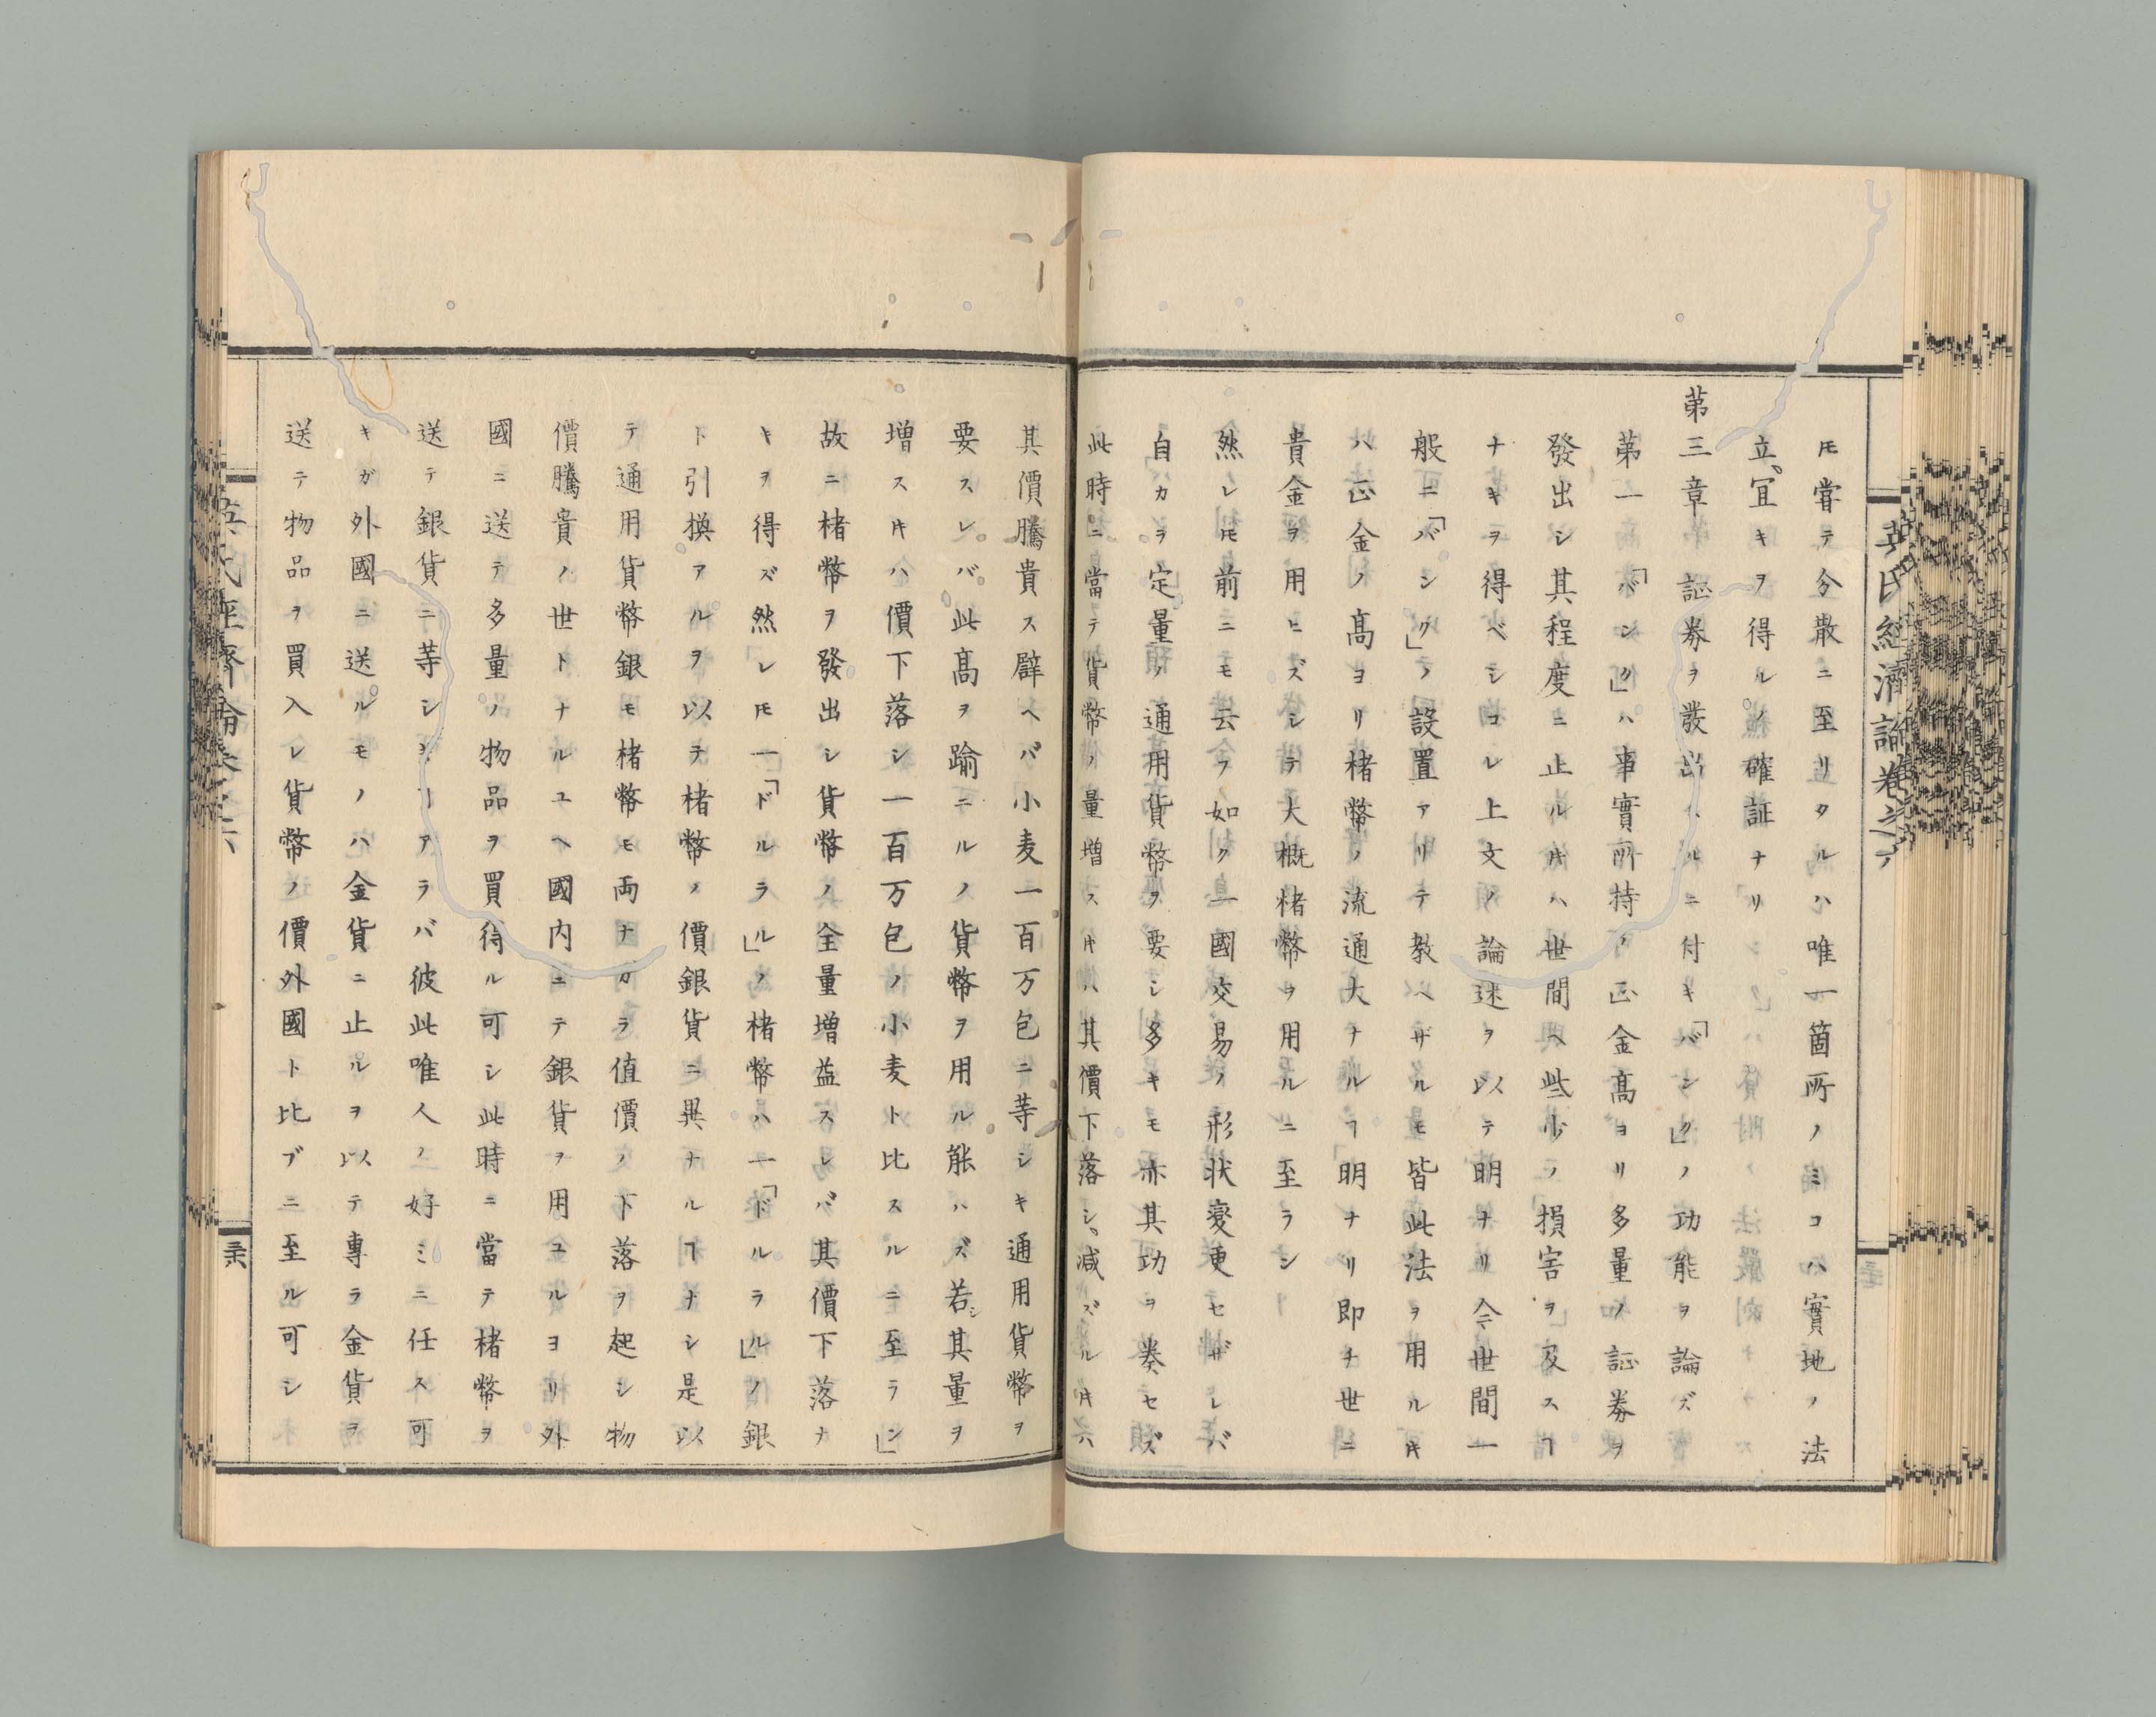 英氏經濟論卷之六
𪜈甞テ分散ニ至リタルハ唯一箇所ノミコハ實地ノ法
立宜キヲ得ルノ確証ナリ
第三章 証券ヲ發出スルニ付キ「バンク」ノ功能ヲ論ズ
第一「バンク」ハ事實所持ノ正金高ヨリ多量ノ証券ヲ
發出シ其程度ニ止ル𪜀ハ世間ヘ些少ノ損害ヲ及スヿ
ナキヲ得ベシコレ上文ノ論述ヲ以テ明ナリ今世間一
般ニ「バンク」ノ設置アリテ教ヘザルモ皆此法ヲ用ル𪜀
ハ正金ノ高ヨリ楮幣ノ流通大ナルヿ明ナリ即チ世ニ
貴金ヲ用ヒズシテ大概楮幣ヲ用ルニ至ラン
然レ𪜈前ニモ云フ如ク一國交易ノ形状變更セザレバ
自カラ定量ノ通用貨幣ヲ要シ多キモ亦其功ヲ奏セズ
此時ニ當テ貨幣ノ量増ス𪜀ハ其價下落シ減ズル𪜀ハ
其價騰貴ス譬ヘバ小麦一百万包ニ等シキ通用貨幣ヲ
要スレバ此高ヲ踰ニルノ貨幣ヲ用ル能ハズ若シ其量ヲ
増ス𪜀ハ價下落シ一百万包ノ小麦ト比スルニ至ラン」
故ニ楮幣ヲ發出シ貨幣ノ全量増益スレバ其價下落ナ
キヲ得ズ然レ𪜈一「ドルラル」ノ楮幣ハ一「ドルラル」ノ銀
ト引換アルヲ以テ楮幣ノ價銀貨ニ異ナルヿナシ是以
テ通用貨幣銀モ楮幣モ両ナガラ値價ノ下落ヲ起シ物
價騰貴ノ世トナルユヘ國内ニテ銀貨ヲ用ユルヨリ外
國ニ送テ多量ノ物品ヲ買得ル可シ此時ニ當テ楮幣ヲ
送テ銀貨ニ等シキヿアラバ彼此唯人ノ好ミニ任ス可
キガ外國ニ送ルモノハ金貨ニ止ルヲ以テ專ラ金貨ヲ
送テ物品ヲ買入レ貨幣ノ價外國ト比ブニ至ル可シ